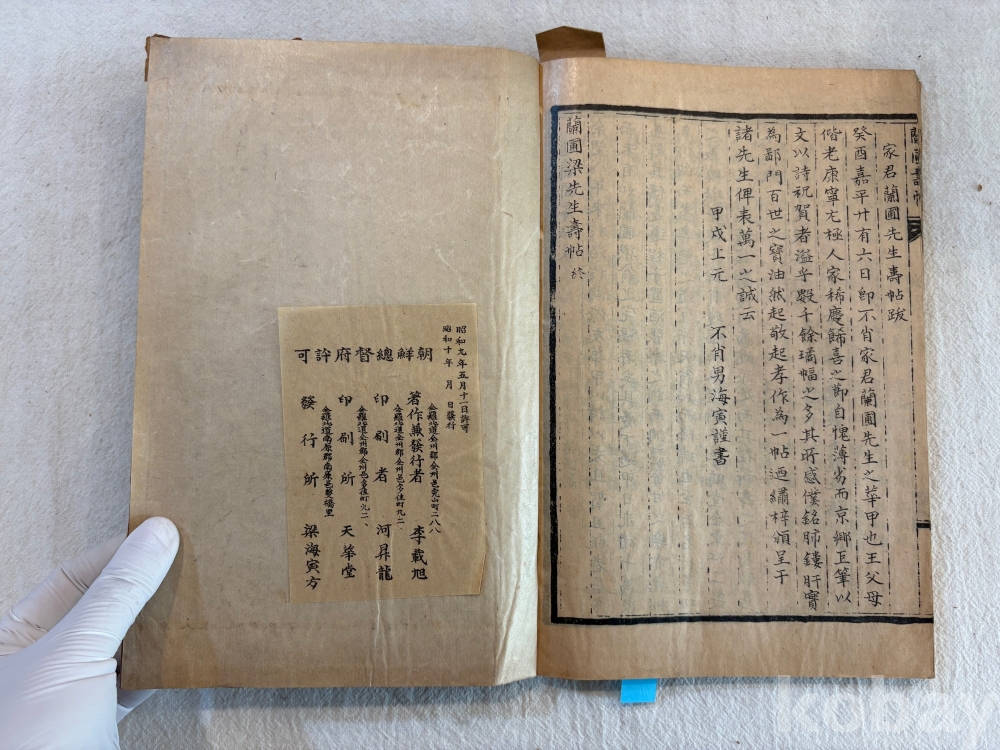 蘭圃壽帖
家君蘭圃先生壽帖跋
癸酉嘉平廿有六日卽不肖家君蘭圃先生之華甲也王父母
偕老康寧尤極人家稀慶餙喜之節自愧薄劣而京鄕巨筆以
文以詩祝賀者溢乎數千餘璚幅之多其所感僕銘肺鏤肝實
為鄙門百世之寶油然起敬起孝作為一帖迺繡梓頒呈于
諸先生俾表萬一之誠云
甲戌上元 不肖男海寅謹書
蘭圃梁先生壽帖 終
昭和九年五月十一日許可
昭和十年 月 日發行
朝鮮總督府許可
全羅北道全州郡全州邑完山町二八八
著作兼發行者 李載旭
全羅北道全州郡全州邑多佳町九二、
印刷者 河昇龍
全羅北道全州郡全州邑多佳町九二、
印刷所 天華堂
全羅北道南原郡南原邑雙橋里
發行所 梁海寅方
kobay